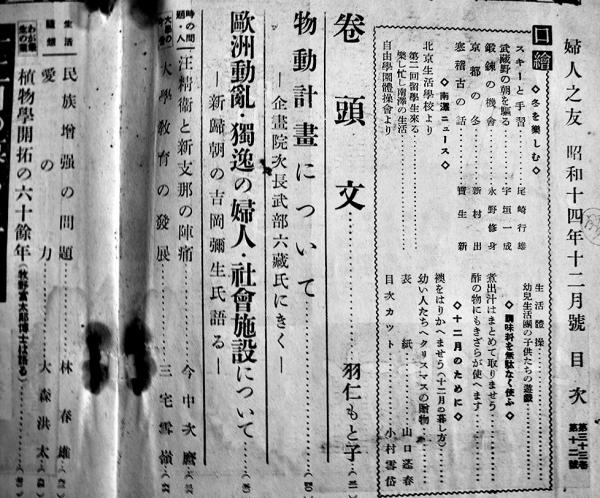 婦人之友 昭和十四年十二月號 目次 第三十三卷 第十二號
口繪
◇冬を樂しむ◇
スキーと手習 尾崎行雄
武藏野の朝を驅る 宇垣一成
鍛錬の機會 永野修身
京都の冬 新村出
寒稽古の話 寶生新
◇南澤ニュース◇
北京生活學校より
第二回留學生來る
樂し忙し南澤の生活
自由學園體操會より
生活體操
幼兒生活團の子供たちの遊戲
◇調味料を無駄なく使ふ◇
煮出汁はまとめて取りませう
酢の物にもきざらが使へます
◇十二月のために◇
襖をはりかへませう(十二月の暮し方)
幼い人たちへクリスマスの贈物
表紙 山口蓬春
目次カット 小村雪岱
卷頭文 羽仁もと子
物動計畫について
―企畫院次長武部六藏氏にきく―
歐洲動亂・獨逸の婦人・社會施設について
―新歸朝の吉岡彌生氏語る―
時の問題・人 汪精衛と新支那の陣痛 今中次麿
大學教育の發展 三宅雪嶺
生活 民族增强の問題 林春雄
隨想 愛の力 大森洪太
わが畢生の業 植物學開拓の六十餘年(牧野富太郎博士は語る)